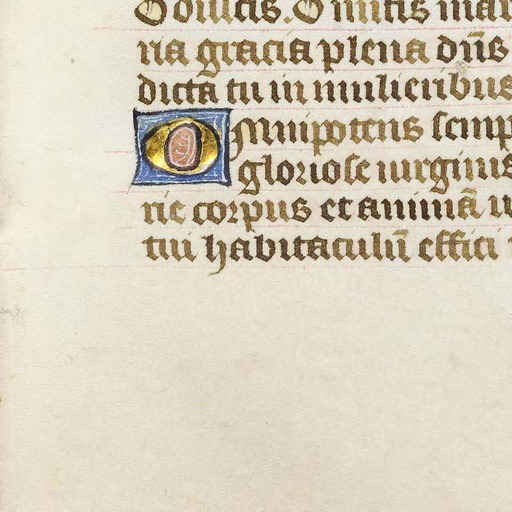 O dulcis. O mitis mar
ria gracia plena dñs
dicta tu in mulieribus
Omnipotens semp
gloriose uirginis
rie corpus et animã
tui habitaculũ effici